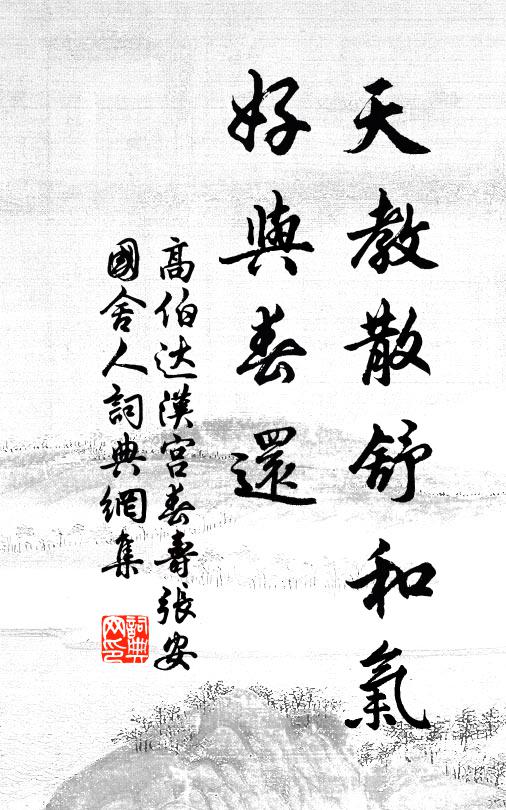 天教散舒和氣
好與春還
高伯达漢宮春壽張安
國舍人詞典網集
詞典
网印